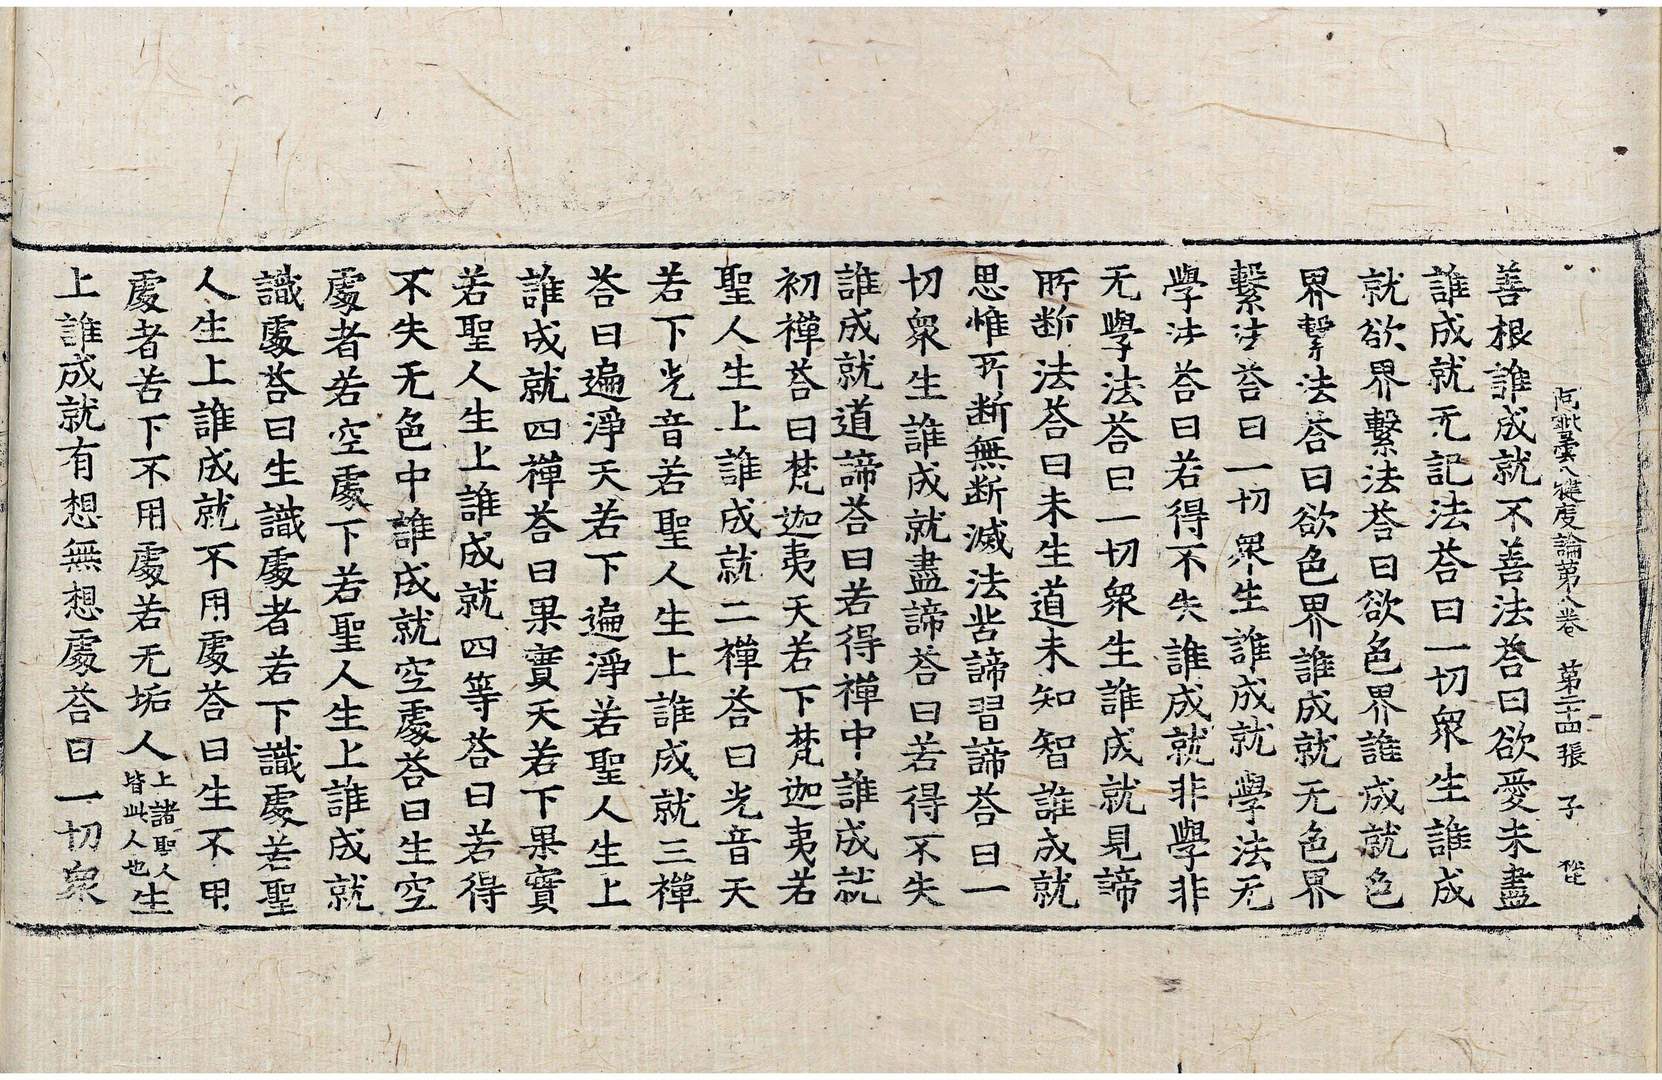 阿毗曇八犍度論第八卷　第二十四張　子
善根誰成就不善法荅曰欲愛未盡
誰成就无記法荅曰一切衆生誰成
就欲界繫法荅曰欲色界誰成就色
界繫法荅曰欲色界誰成就无色界
繫法荅曰一切衆生誰成就學法无
學法荅曰若得不失誰成就非學非
无學法荅曰一切衆生誰成就見諦
所断法荅曰未生道未知智誰成就
思惟所断無断滅法苦諦習諦荅曰一
切衆生誰成就盡諦荅曰若得不失
誰成就道諦荅曰若得禪中誰成就
初禪荅曰梵迦夷天若下梵迦夷若
聖人生上誰成就二禪荅曰光音天
若下光音若聖人生上誰成就三禪
荅曰遍淨天若下遍淨若聖人生上
誰成就四禪荅曰果實天若下果實
若聖人生上誰成就四等荅曰若得
不失无色中誰成就空處荅曰生空
處者若空處下若聖人生上誰成就
識處荅曰生識處者若下識處若聖
人生上誰成就不用處荅曰生不用
處者若下不用處若无垢人上諸聖人皆此人也生
上誰成就有想無想處荅曰一切衆